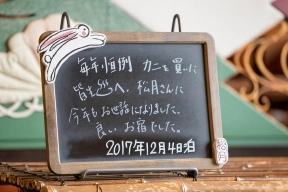 毎年恒例 カニを買いに
皆生温泉へ。松月さんに
今年もお世話になりました。
良いお宿でした。
2017年12月4日泊